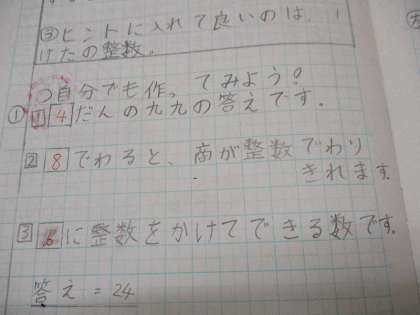 ③ヒントに入れて良いのは、1
けたの整数。
自分でも作ってみよう!
① 4だんの九九の答えです.
② 8でわると、商が整数でわり
きれます.
③ 6に整数をかけてできる数です.
答え=24